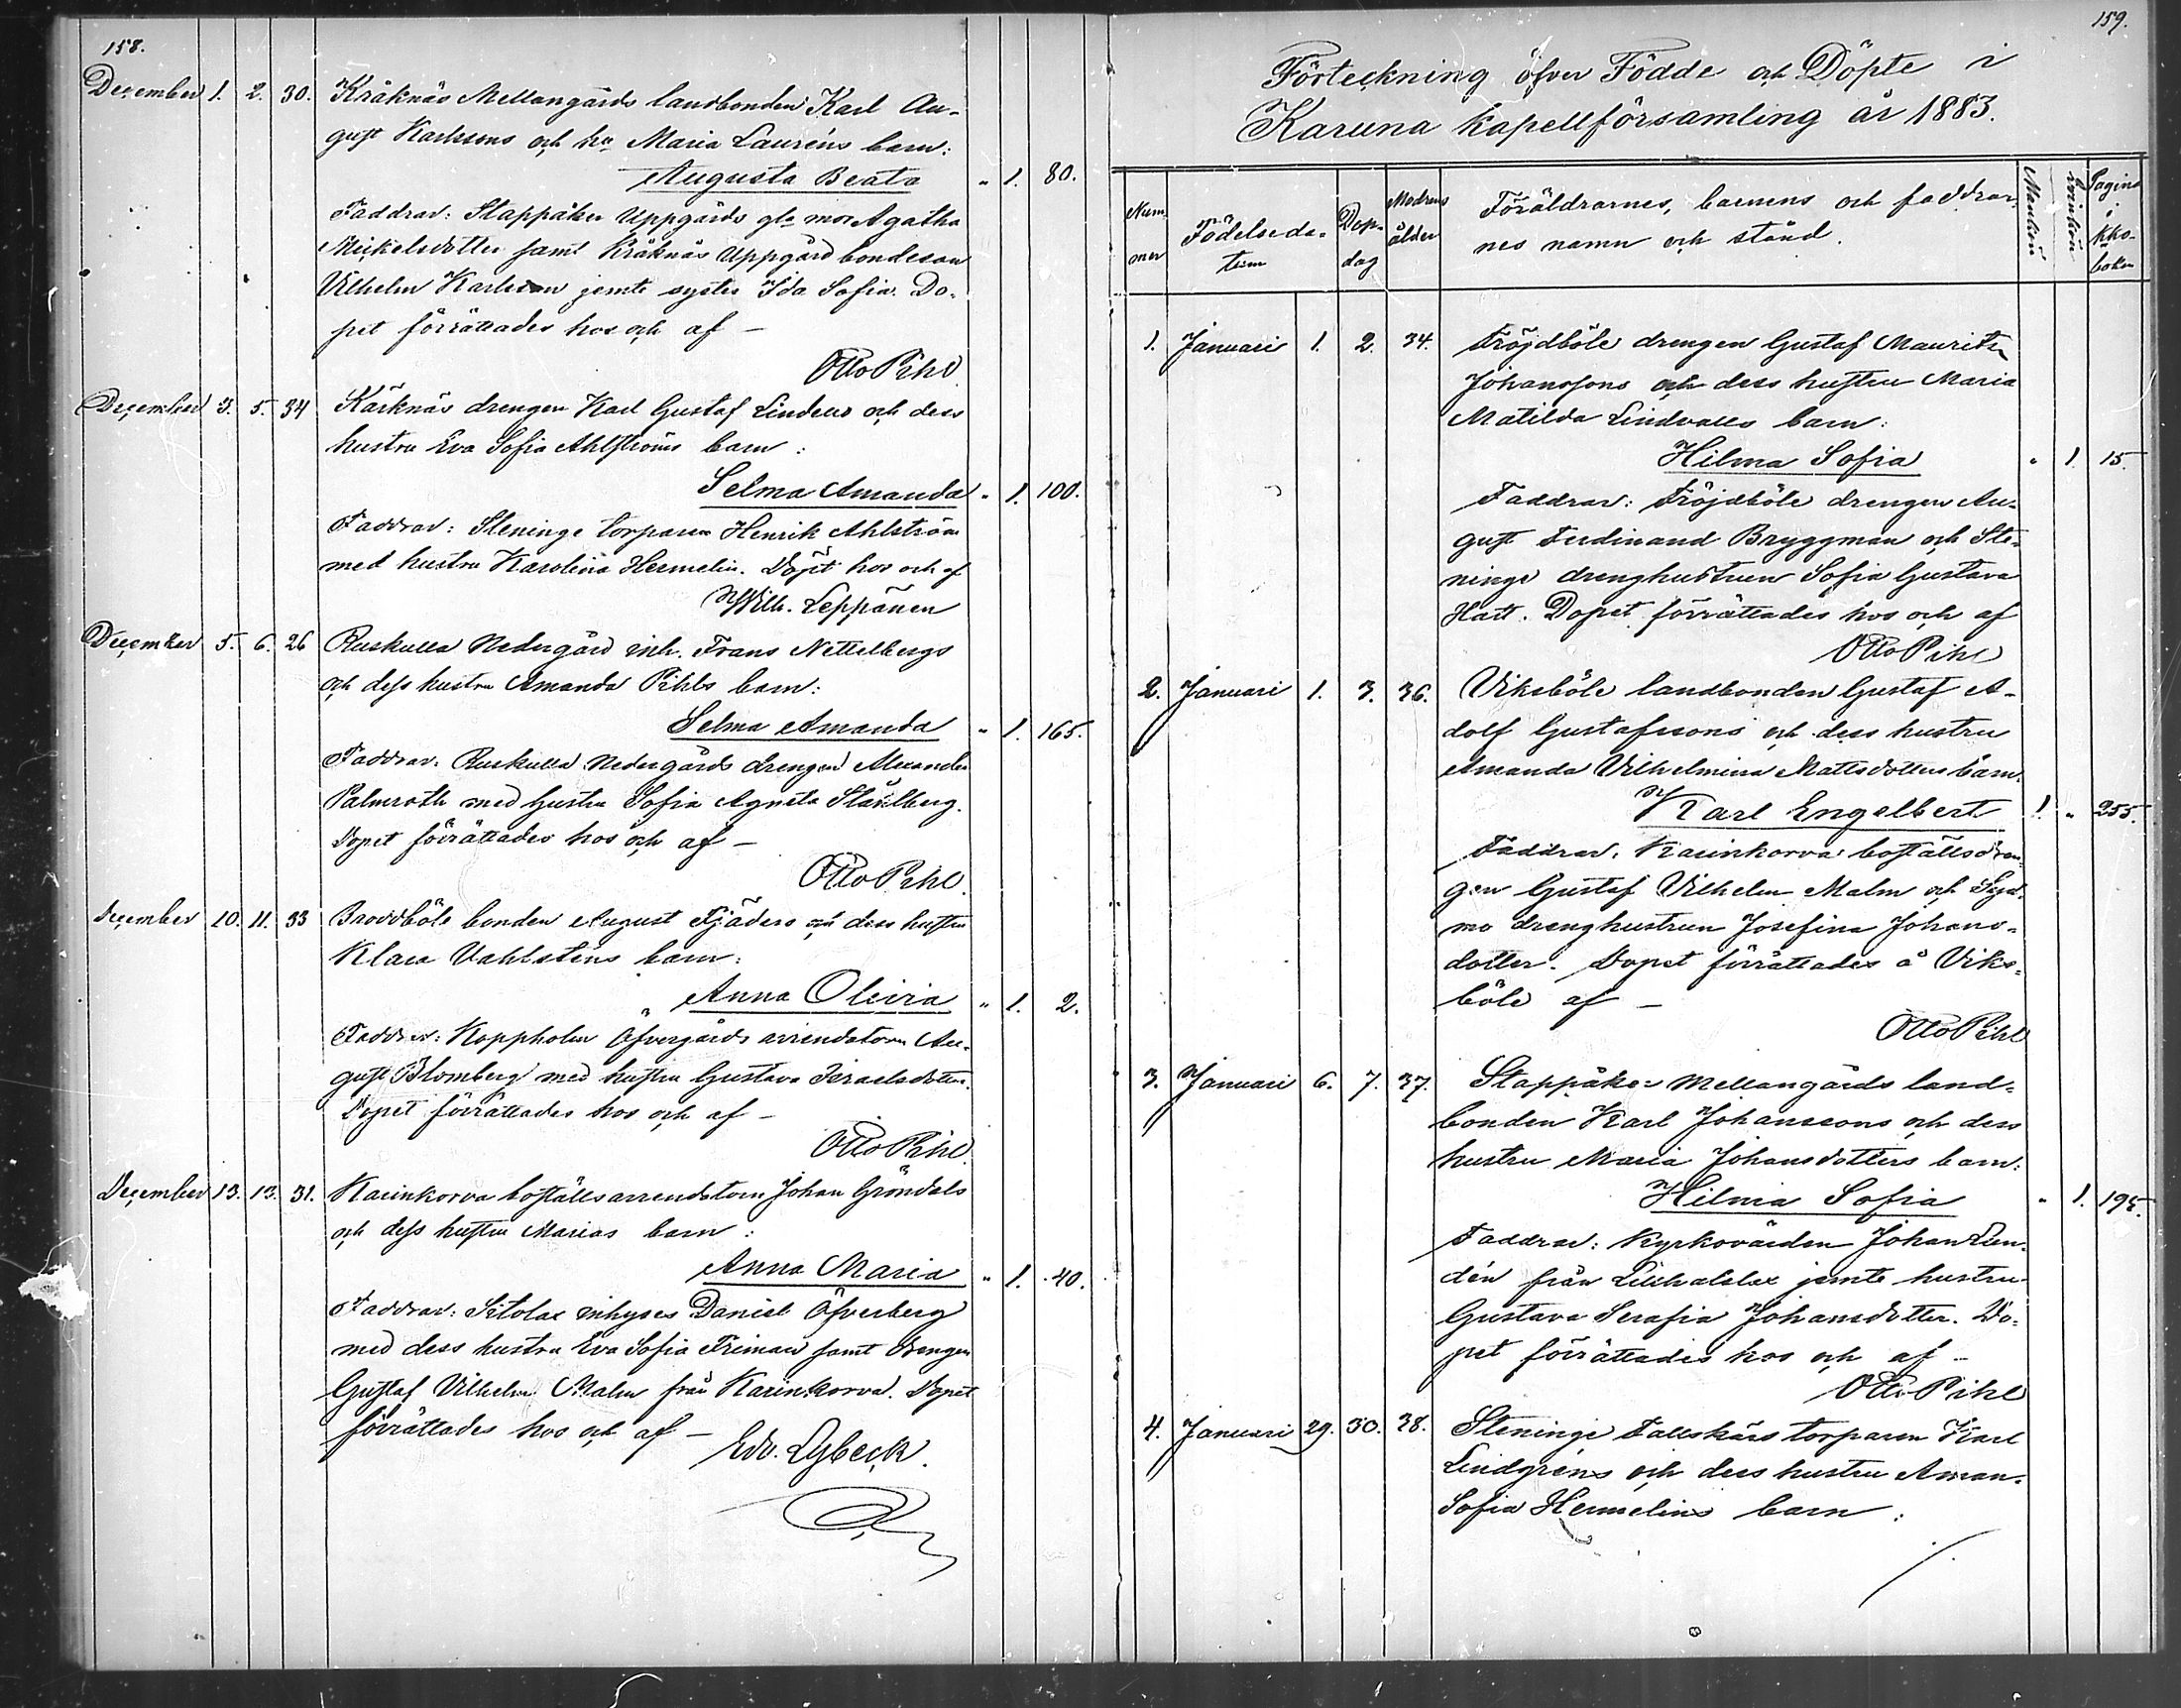 158.
December 1. 2. 30. Kräknäs Mellangårds landbonden Karl Au-
gust Karlssons och h:a Maria Lauréns barn:
Augusta Beata " 1. 80.
Faddrar: Stappåker Uppgårds gla mor Agatha
Mickelsdotter samt Kräknäs Uppgård bondeson
Vilhelm Karlsson jemte syster Ida Sofia. Do-
pet förrättades hos och af –
Otto Pihl
December 3. 5. 34 Kärknäs drengen Karl Gustaf Lindens och dess
hustru Eva Sofia Ahlströms barn:
Selma Amanda " 1. 100.
Faddrar: Steninge torparen Henrik Ahlström
med hustru Karolina Hermelin. Döpt hos och af
Wilh. Leppänen
December 5. 6. 26 Ruskulla Nedergård inh. Frans Nettelbergs
och dess hustru Amanda Pihls barn:
Selma Amanda " 1. 165.
Faddrar. Ruskulla Nedergårds drengen Alexander
Palmroth med hustru Sofia Agneta Stählberg.
Dopet förrättades hos och af –
Otto Pihl.
December 10. 11. 33 Broddböle bonden August Fjäders och dess hustru
Klara Vahlsténs barn:
Anna Olivia " 1. 2.
Faddrar: Koppholm Öfvergårds arrendatorn Au-
gust Blomberg med hustru Gustava Israelsdotter.
Dopet förrättades hos och af –
Otto Pihl.
December 13. 13. 31. Karinkorva boställsarrendatorn Johan Gröndals
och dess hustru Marias barn:
Anna Maria " 1. 40.
Faddrar: Sitolax inhyses Daniel Öfverberg
med dess hustru Eva Sofia Friman samt drengen
Gustaf Vilhelm Malm från Karinkorva. Dopet
förrättades hos och af –
Edv. Lybeck.
159.
Förteckning öfver Födde och Döpte i
Karuna Kapellförsamling år 1883.
Num-
mer
Födelseda-
tum
Dop-
dag
Modrens
ålder
Föräldrarnes, barnens och faddrar-
nes namn och stånd.
Mankön
Qvinkön
Pagina
i
kko-
boken
1. Januari 1. 2. 34. Fröjdböle drengen Gustaf Maurits
Johanssons och dess hustru Maria
Matilda Lindvalls barn:
Hilma Sofia " 1. 15.
Faddrar: Fröjdböle drengen Au-
gust Ferdinand Bryggman och Ste-
ninge drenghustrun Sofia Gustava
Hatt. Dopet förrättades hos och af
Otto Pihl
2. Januari 1. 3. 36. Viksböle landbonden Gustaf A-
dolf Gustafssons och dess hustru
Amanda Vilhelmina Mattsdotters barn.
Karl Engelbert 1. " 255.
Faddrar. Karinkorva boställsdren-
gen Gustaf Vilhelm Malm och
mo drenghustrun Josefina Johans-
dotter. Dopet förrättades å Viks-
böle af –
Otto Pihl
3. Januari 6. 7. 37. Stappåker Mellangårds land-
bonden Karl Johanssons och dess
hustru Maria Johansdotters barn:
Hilma Sofia " 1. 195.
Faddrar: Kyrkovärden Johan Lun-
dén från jemte hustru
Gustava Serafia Johansdotter. Do-
pet förrättades hos och af –
Otto Pihl
4. Januari 29. 30. 38. Steninge Fallskärs torparen Karl
Lindgréns och dess hustru Aman-
Sofia Hermelins barn: